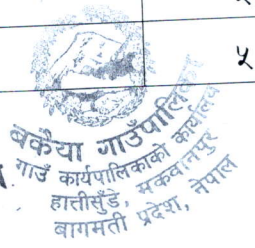 ५
बकैया गाउँपालिका
गाउँ कार्यपालिकाको कार्यालय
हात्तीसुँडे, मकवानपुर
बागमती प्रदेश, नेपाल